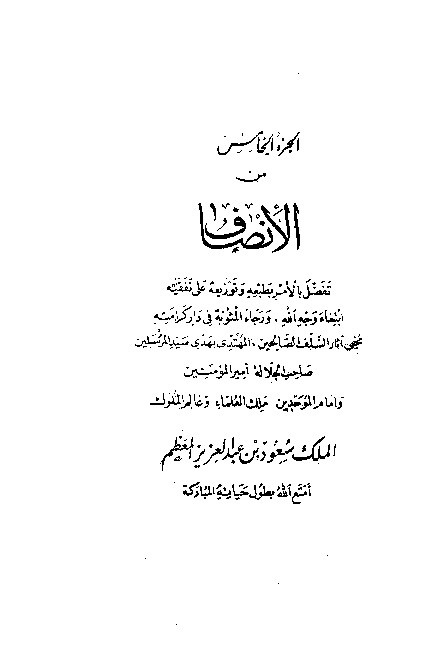 الجزء الخامس
من
الإنصاف
تفضل بالأمر بطبعه وتوزيعه على نفقته
ابتغاء وجه الله ، ورجاء المثوبة في دار كرامته
محيي آثار السلف الصالحين ، المهتدي بهدي سيد المرسلين
صاحب الجلالة أمير المؤمنين
وإمام الموحدين ملك العلماء وعالم الملوك
الملك سعود بن عبد العزيز المعظم
أمتع الله بطول حياته المباركة